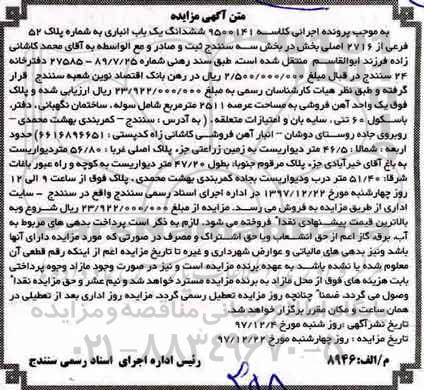 متن آگهی مزایده
به موجب پرونده اجرائی کلاسه ۹۵۰۰۱۴۱ ششدانگ یک باب انباری به شماره پلاک ۵۲
فرعی از ۲۷۱۶ اصلی بخش در بخش سه سنندج ثبت و صادر و مع الواسطه به آقای محمد کاشانی
زاده فرزند ابوالقاسم منتقل شده است، طبق سند رهنی شماره ۸۹/۷/۲۵ - ۲۷۵۸۵ دفترخانه
۲۴ سنندج در قبال مبلغ ۲/۵۰۰/۰۰۰/۰۰۰ ریال در رهن بانک اقتصاد نوین شعبه سنندج قرار
گرفته و طبق نظر هیات کارشناسان رسمی به مبلغ ۲۳/۹۲۲/۰۰۰/۰۰۰ ریال ارزیابی شده و پلاک
فوق یک واحد آهن فروشی به مساحت عرصه ۲۵۱۱ مترمربع شامل سوله، ساختمان نگهبانی، دفتر،
باسکول ۶۰ تنی، سایه بان و امتیازات متعلقه. ( به آدرس : سنندج – کمربندی بهشت محمدی –
روبروی جاده روستای دوشان – انبار آهن فروشی کاشانی زاه کدپستی : ۶۶۱۶۸۹۶۶۵۱) حدود
اربعه : شمالا : ۴۶/۵ متر دیواریست به زمین زراعتی جز، پلاک اصلی غربا : ۵۶/۸۰ متردیواریست
به باغ آقای خیرآبادی جز، پلاک مرقوم جنوبا، بطول ۴۷/۲۰ متر دیواریست به کوچه و راه عبور باغات
شرقا: ۵۱/۴۰ متر درب ودیواریست بجاده کمربندی بهشت محمدی. پلاک فوق از ساعت ۹ الی ۱۲
روز چهارشنبه مورخ ۱۳۹۷/۱۲/۲۲ در اداره اجرای اسناد رسمی سنندج واقع در سنندج – سایت
اداری از طریق مزایده به فروش می رسد. مزایده از مبلغ ۲۳/۹۲۲/۰۰۰/۰۰۰ ریال شروع وبه
بالاترین قیمت پیشنهادی نقداً فروخته می شود. لازم به ذکر است پرداخت بدهی های مربوط به
آب، برق، گاز اعم از حق انشعاب ویا حق اشتراک و مصرف در صورتی که مورد مزایده دارای آنها
باشد ونیز بدهی های مالیاتی و عوارض شهرداری و غیره تا تاریخ مزایده اعم از اینکه رقم قطعی آن
معلوم شده یا نشده باشد به عهده برنده مزایده است و نیز در صورت وجود مازاد وجوه پرداختی
بابت هزینه های فوق از محل مازاد به برنده مزایده مسترد خواهد شد و نیم عشر و حق مزایده نقداً
وصول می گردد. ضمناً چنانچه روز مزایده تعطیل رسمی گردد، مزایده روز اداری بعد از تعطیلی در
همان ساعت و مکان مقرر برگزار خواهد شد.
تاریخ نشرآگهی: روز شنبه مورخ ۹۷/۱۲/۴
تاریخ مزایده : روز چهارشنبه مورخ ۹۷/۱۲/۲۲
م/الف: ۸۹۴۶ رئیس اداره اجرای اسناد رسمی سنندج